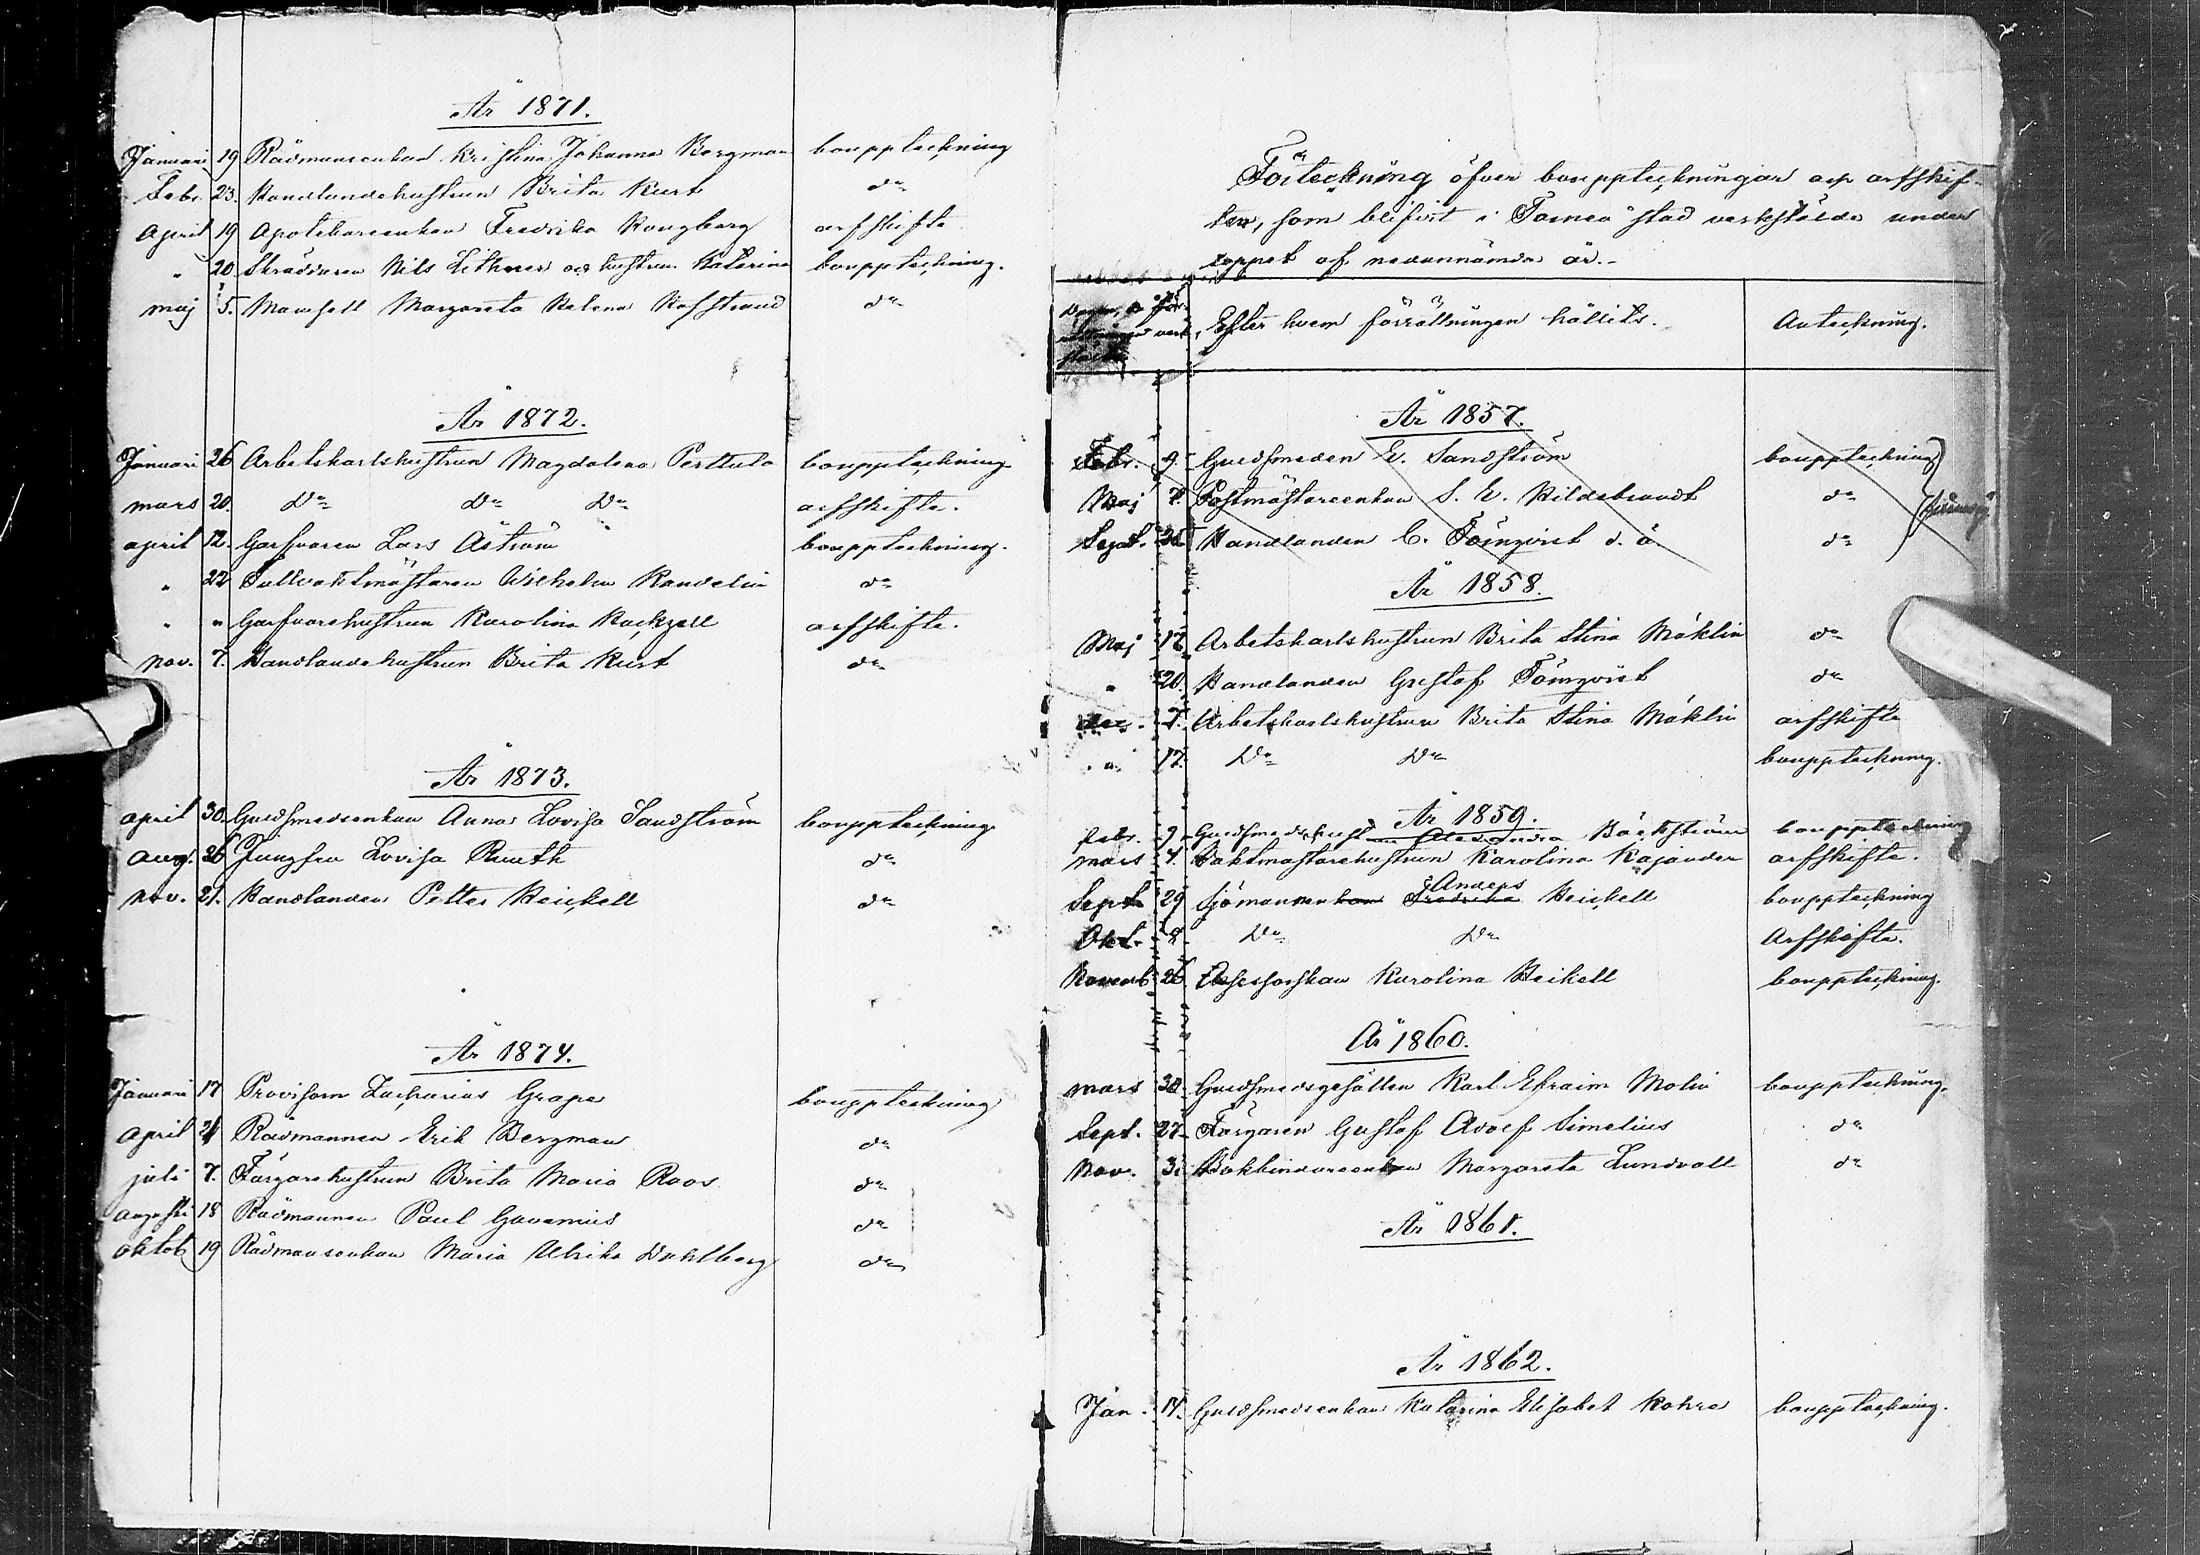 År 1871.
Januari 19 Rådmansenkan Kristina Johanna Bergman bouppteckning
Febr. 23. Handlandehustrun Brita Kurt do
April 19 Apotekareenkan Fredrika Kongberg arfskifte
" 20 Skräddaren Nils Lithner och hustrun Katarina bouppteckning.
maj 5. Mamsell Margareta Helena Hofstrand do
År 1872.
Januari 26 Arbetskarlshustrun Magdalena Perttula bouppteckning
mars 20. Do Do Do arfskifte.
april 12. Garfvaren Lars Åström bouppteckning.
" 22 Tullvaktmästaren Wilhelm Kandelin do
" " Garfvarehustrun Karolina Kackzell arfskifte.
nov. 7. Handlandehustrun Brita Kurt do
År 1873.
april 30. Guldsmedsenkan Anna Lovisa Sandström bouppteckning
aug. 26 Jungfru Lovisa Ruuth do
nov. 21. Handlanden Petter Heickell do
År 1874.
Januari 17 Provisorn Zacharias Grape bouppteckning
April 21 Rådmannen Erik Bergman do
juli 7. Färgarehustrun Brita Maria Roos do
augusti 18 Rådmannen Paul Govenius do
oktob 19 Rådmansenkan Maria Ulrika Dahlberg do
Förteckning öfver bouppteckningar och arfskif-
ten, som blifvit i Torneå stad verkstälde under
loppet af nedannämda år.-
Efter hvem förrättningen hållits. Anteckning.
År 1857.
Febr. 9. Guldsmeden E. Sandström bouppteckning
Maj 7. Postmästareenkan S. E. Hildebrandt do
Sept. 25 Handlanden C. Törnqvist d. ä. do
År 1858.
Maj 12 Arbetskarlshustrun Brita Stina Mäklin do
" 20. Handlanden Gustaf Törnqvist do
dec. 7. Arbetskarlshustrun Brita Stina Mäklin arfskifte
" 17. Do Do bouppteckning.
År 1859.
febr. 7. Guldsmedshustrun Alexandra Bäckström bouppteckning
mars 4. Vaktmästarehustrun Karolina Kajander arfskifte.
Anders
Sept. 29 Sjömannenkan Fredrika Heickell bouppteckning
Okt. 8 Do Do Arfskifte.
Novemb 26 Assessorskan Karolina Heikell bouppteckning.
År 1860.
mars 30. Guldsmedsgesällen Karl Efraim Molin bouppteckning.
Sept. 27. Färgaren Gustaf Adolf Simelius do
Nov. 3. Bokbindareenkan Margareta Lundvall do
År 1861.
År 1862.
Jan. 14. Guldsmedsenkan Katarina Elisabet Kohre bouppteckning.